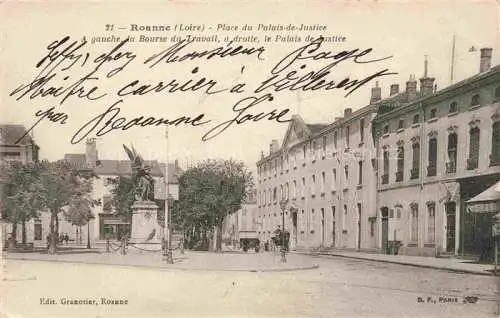 21 - Roanne (Loire) - Place du Palais-de-Justice
A gauche, la Bourse du Travail, à droite, le Palais de Justice
chez Monsieur Page
Maitre carrier à Villerest
par Roanne Loire
Edit. Granotier, Roanne
B. F., Paris